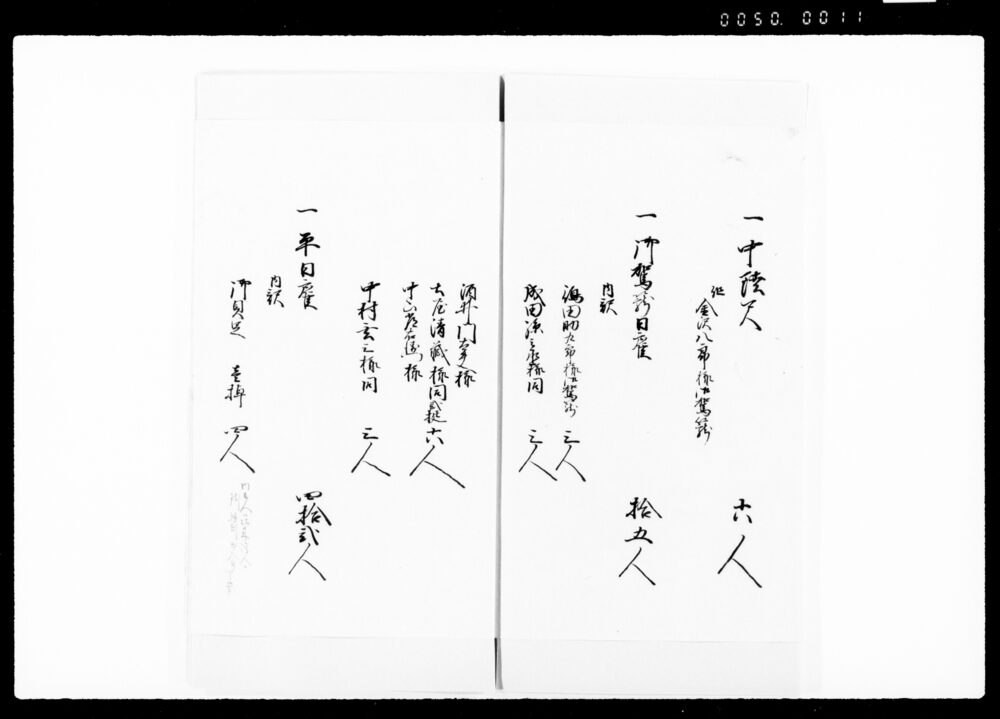 0050.0011
一中陸尺 六人
但金沢八郎様御駕籠
一御駕籠日雇 拾五人
内訳
嶋田助九郎様御駕籠 三人
成田源之丞様同 三人
酒井門
土屋清蔵様同弐挺 六人
中山 右衛門様
中村玄之様同 三人
一平日雇 四拾弐人
内訳
御具足 壱棹 四人